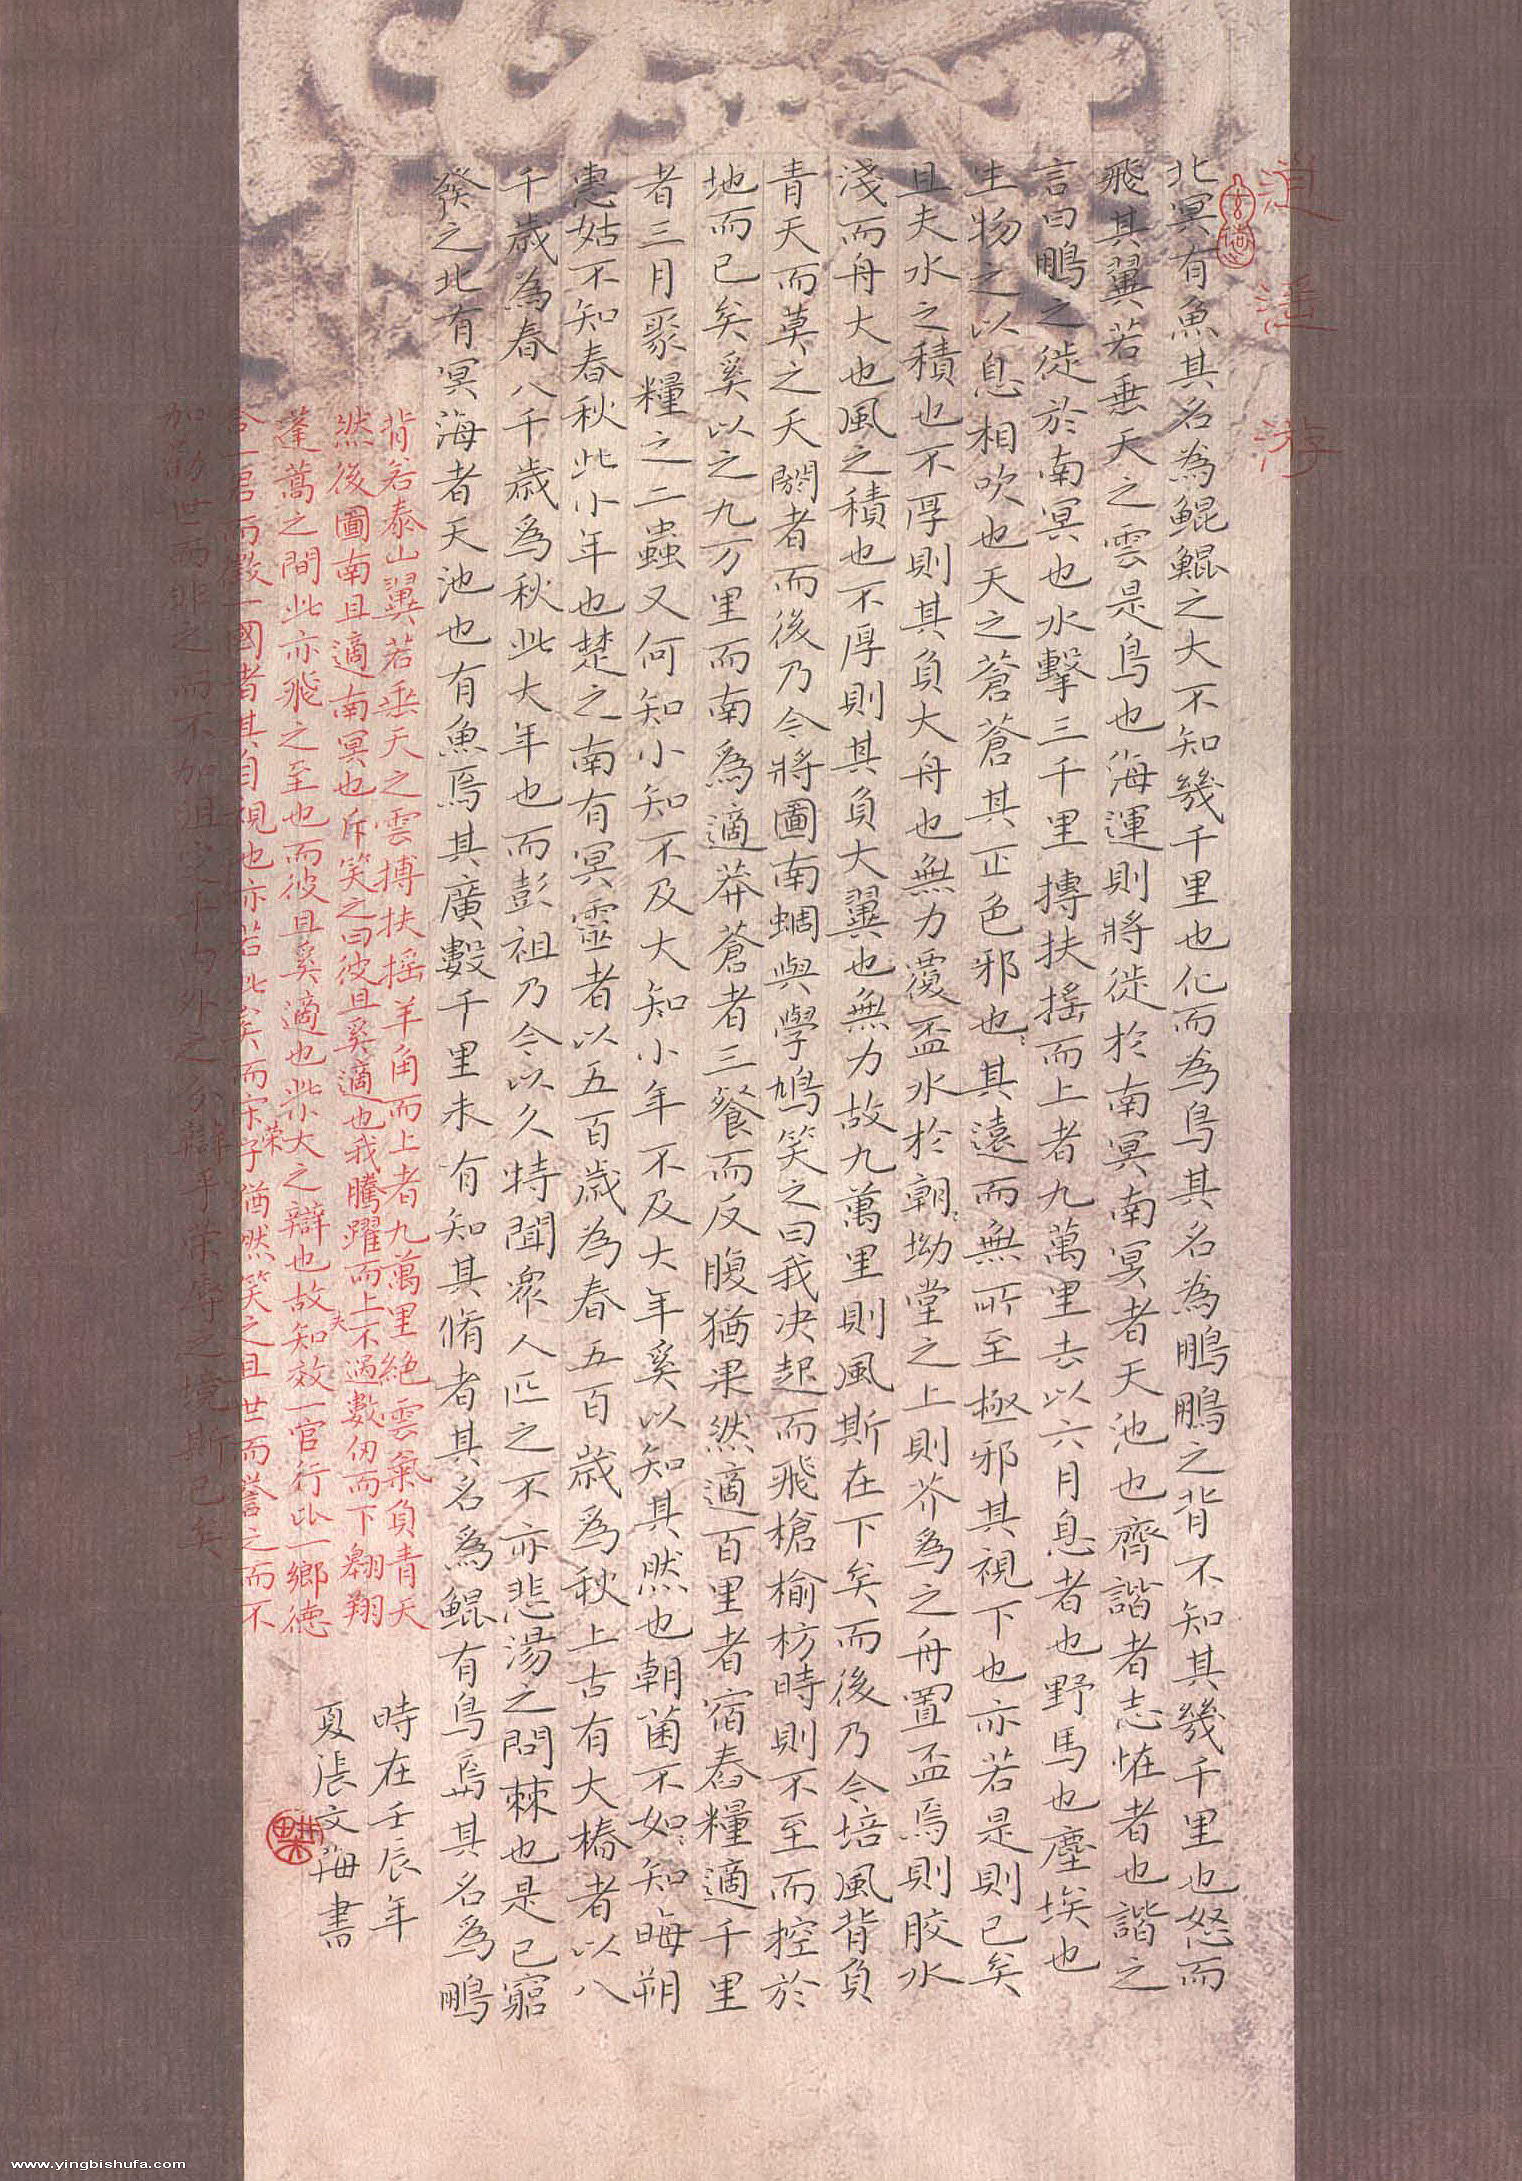 逍遥游
北冥有魚其名為鯤鯤之大不知幾千里也化而為鳥其名為鵬鵬之背不知其幾千里也怒而
飛其翼若垂天之雲是鳥也海運則將徙於南冥南冥者天池也齊諧者志怪者也諧之
言曰鵬之徙於南冥也水擊三千里摶扶搖而上者九萬里去以六月息者也野馬也塵埃也
生物之以息相吹也天之蒼蒼其正色邪也其遠而無所至極邪其視下也亦若是則已矣
且夫水之積也不厚則其負大舟也無力覆盃水於朝坳堂之上則芥為之舟置盃焉則膠水
淺而舟大也風之積也不厚則其負大翼也無力故九萬里則風斯在下矣而後乃今培風背負
青天而莫之夭閼者而後乃今將圖南蜩與學鳩笑之曰我決起而飛槍榆枋時則不至而控於
地而已矣奚以之九万里而南為適莽蒼者三餐而反腹猶果然適百里者宿舂糧適千里
者三月聚糧之二蟲又何知小知不及大知小年不及大年奚以知其然也朝菌不如知晦朔
惠姑不知春秋此小年也楚之南有冥靈者以五百歲為春五百歲為秋上古有大椿者以八
千歲為春八千歲為秋此大年也而彭祖乃今以久特聞衆人匹之不亦悲湯之問棘也是已窮
發之北有冥海者天池也有魚焉其廣數千里未有知其脩者其名為鯤有鳥焉其名為鵬
背若泰山翼若垂天之雲搏扶搖羊角而上者九萬里絕雲氣負青天
然後圖南且適南冥也斥笑之曰彼且奚適也我騰躍而上不過數仞而下翱翔
蓬蒿之間此亦飛之至也而彼且奚適也此小大之辯也故夫知效一官行比一鄉德
合一君而徵一國者其自視也亦若此矣而宋榮子猶然笑之且世而譽之而不
加勸世而非之而不加沮定乎内外之分辯乎荣辱之境斯已矣
時在壬辰年
夏張文海書
www.yingbishufa.com